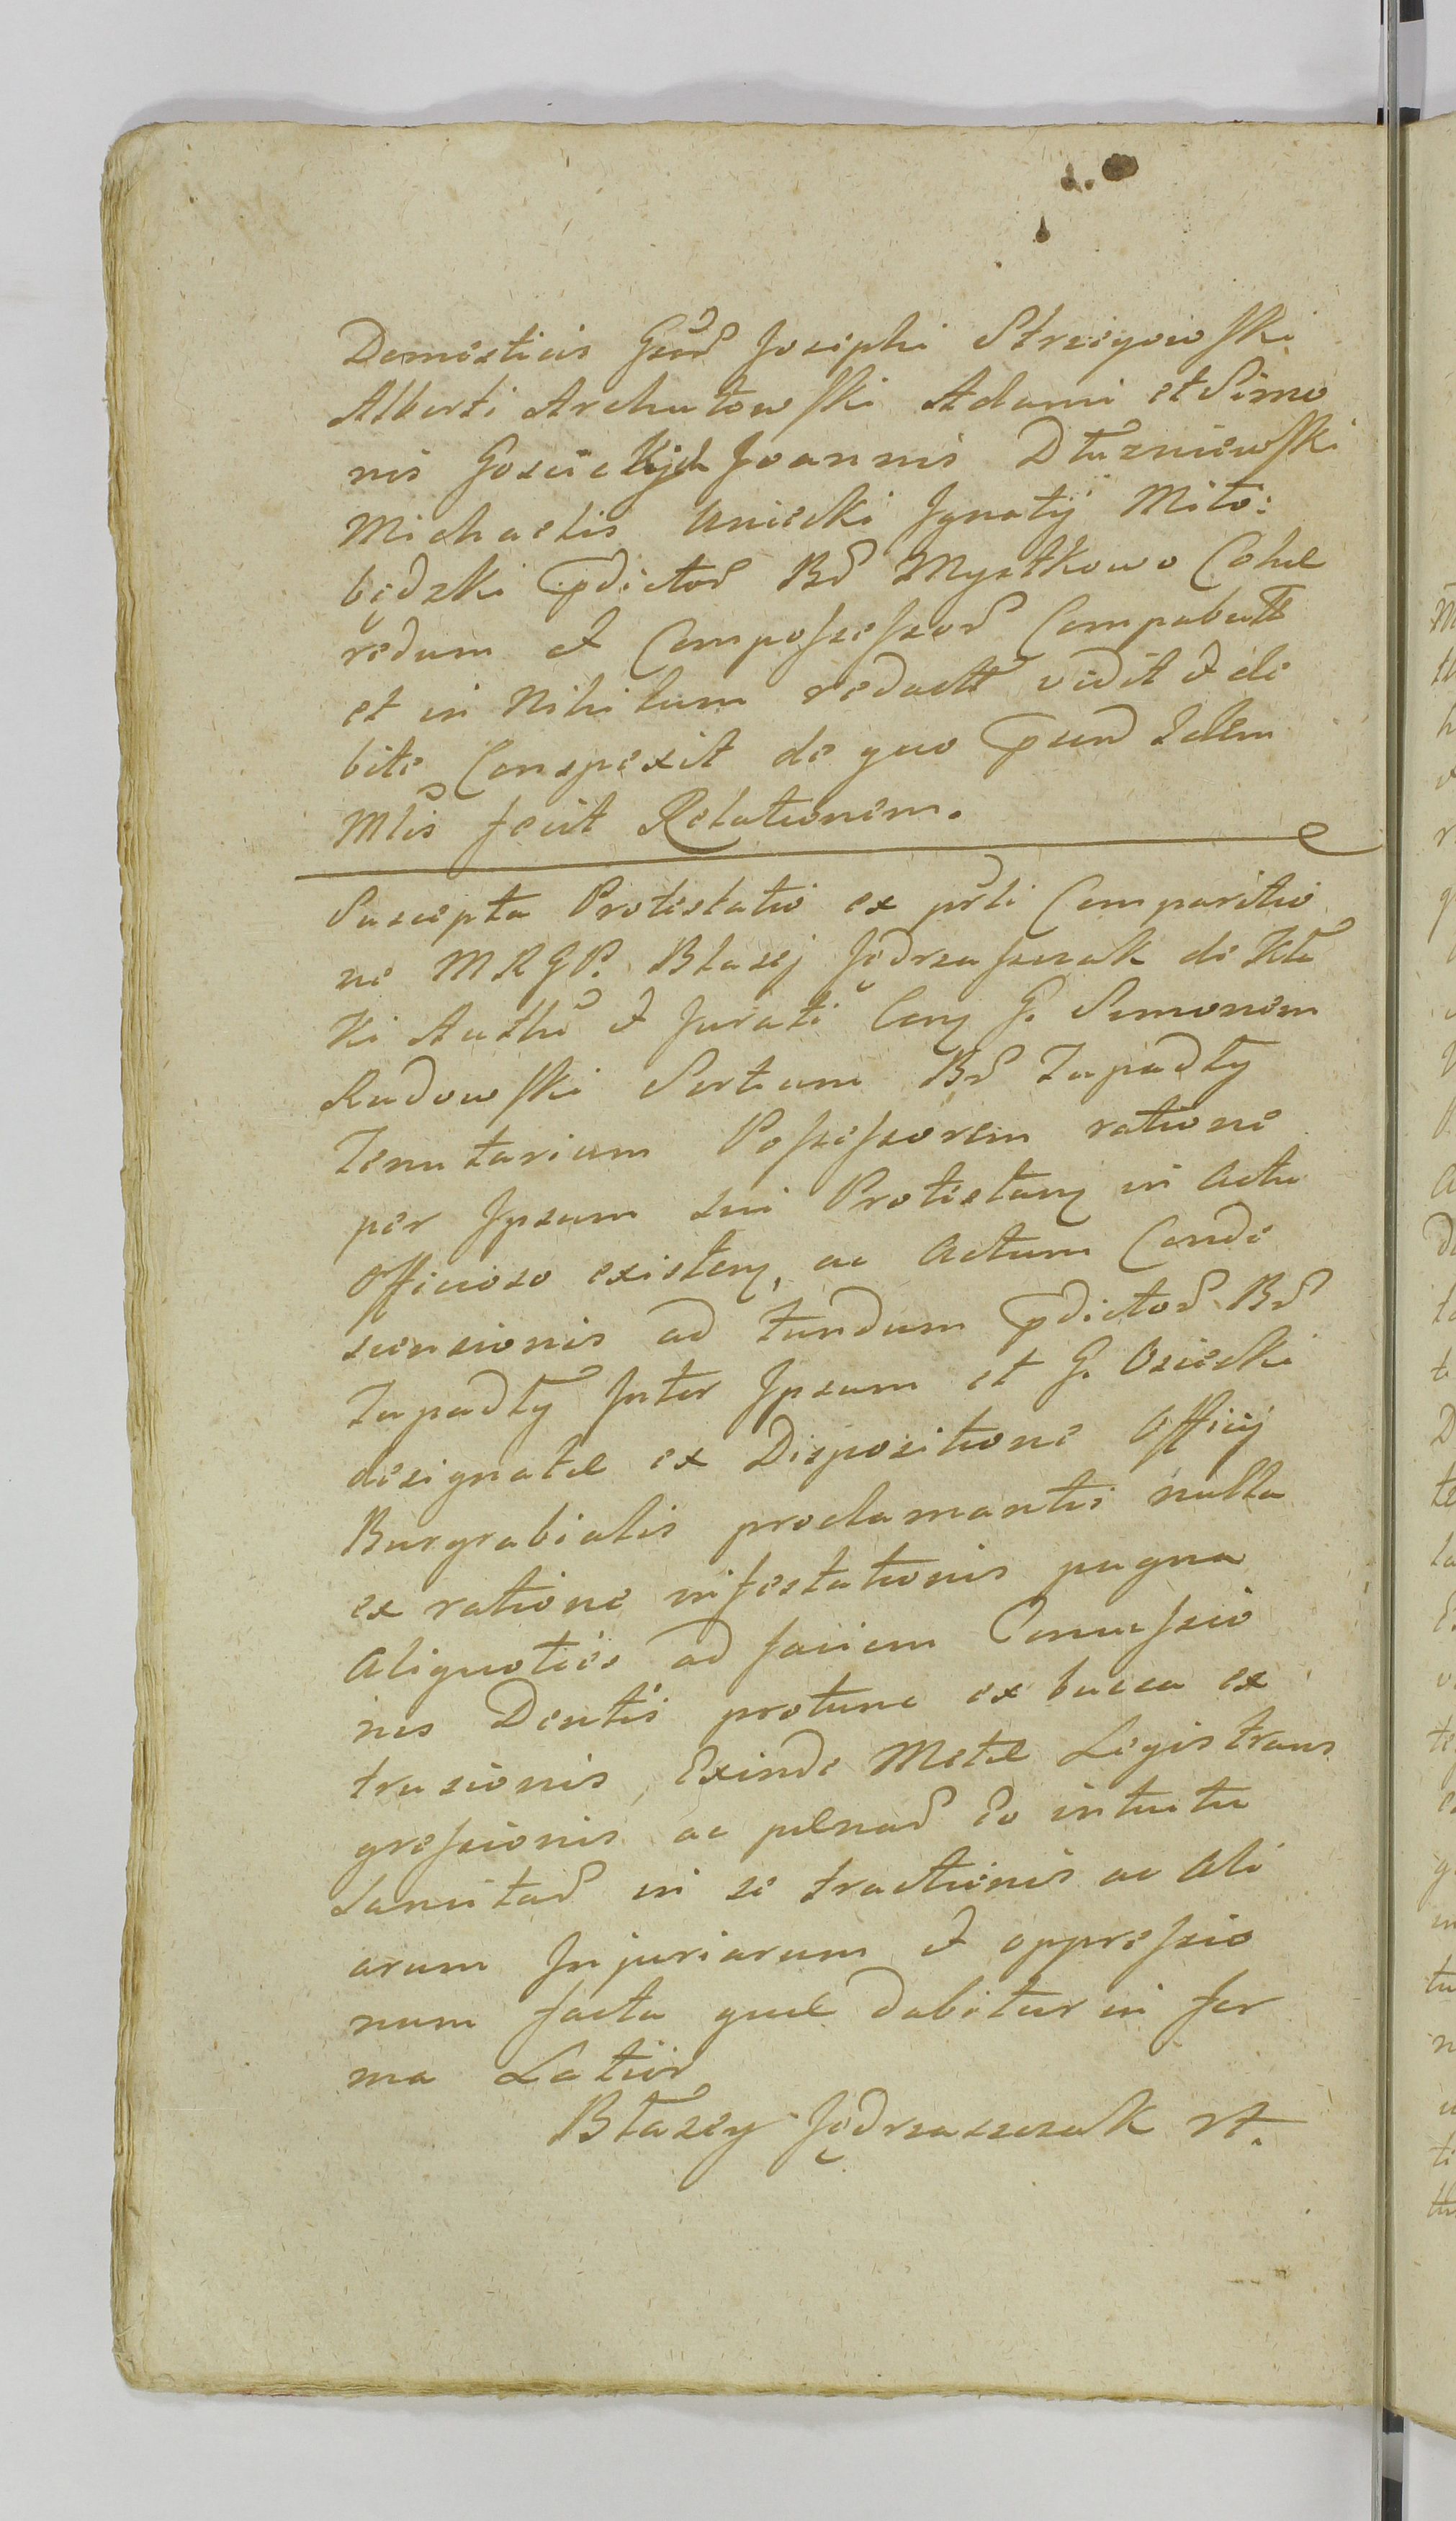 Domesticis Gsor Josephi Strzeyowski
Alberti Archutowski Adami et Simo
nis Gosiickich Joannis Dłuzniewski
Michaelis Unicki Jgnatij Miło:
będzki pdictor Br Mystkowo Cohæ
redum et Compossessor Compabutt
et in Nihilum redactt vidit et de
bite Conspexit de quo psend Idem
Mlis fecit Relationem.
Suscepta Protestatio ex prli Comparitio
ne MRGP. Błazej Jędrzaszczak de
Ki Authi et Jurati Con G. Simonem
Rudowski Sortium Br Zapadły
Tenutarium Possessorem ratione
per Jpsum sui Protestan in actu
Officioso existen, ac actum Conde
scensionis ad fundum pdictor Br
Zapadły Jnter Jpsum et G. Osiecki
designatæ ex Dispositione Officij
Burgrabialis proclamantis nulla
ex ratione infestationis pugna
aliquoties ad faciem Concussio
nis Dentis protunc ex bucca ex
trusionis, Exinde Metæ Legis trans
gressionis ac pænar Eo intuitu
sancitar in se tractionis ac ali
arum Jnjuriarum et oppressio
num facta quæ dabitur in for
ma Latior
Błazey Jędrzaszczak